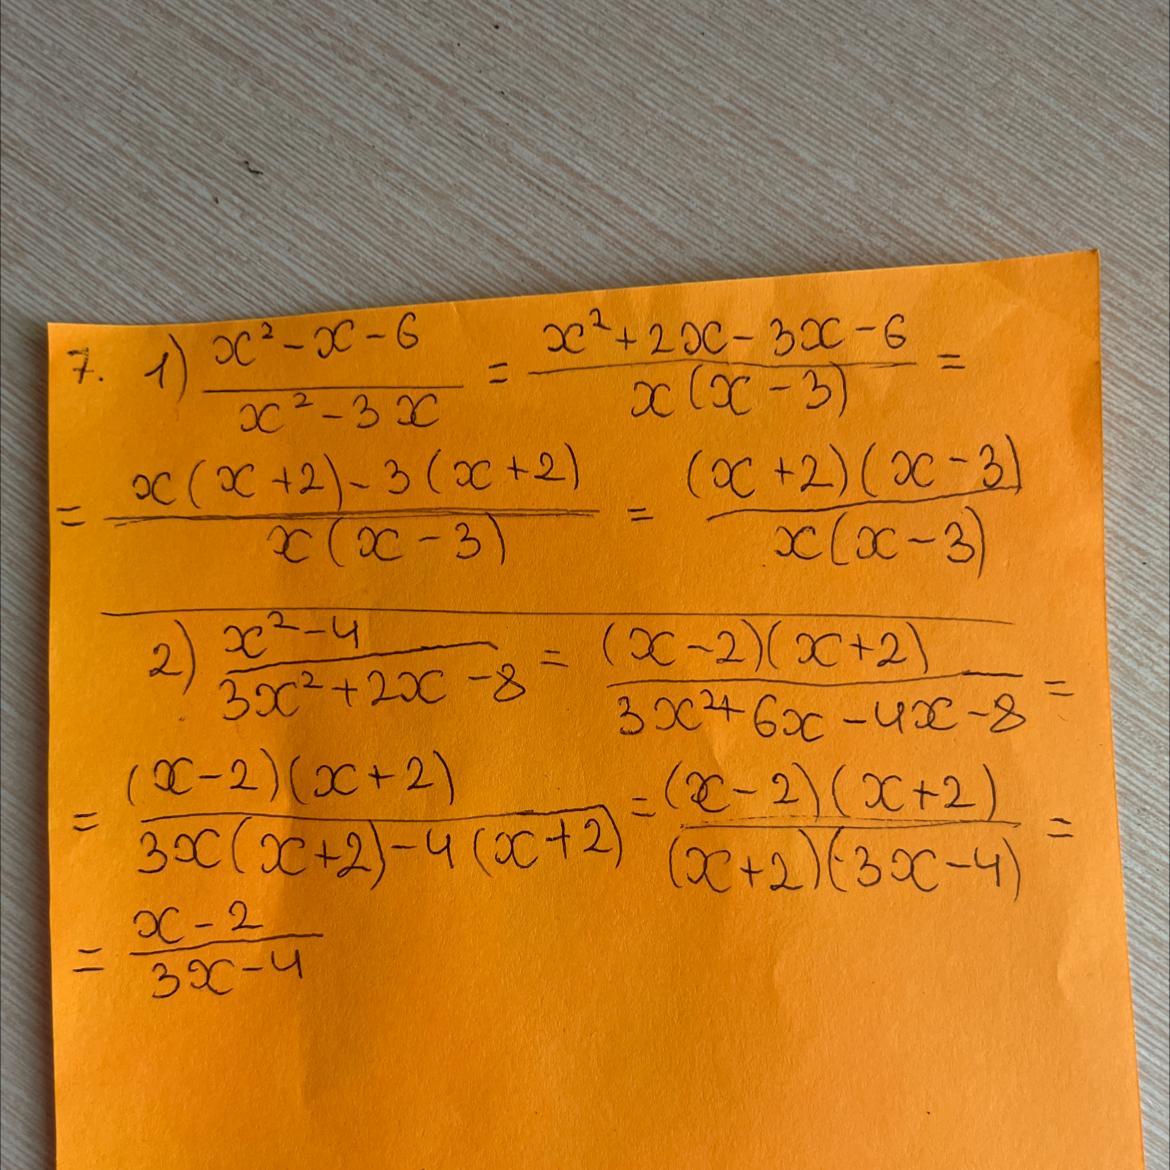 7. 1) (x² - x - 6)/(x² - 3x) = (x² + 2x - 3x - 6)/(x(x - 3)) =
= (x(x + 2) - 3(x + 2))/(x(x - 3)) = ((x + 2)(x - 3))/(x(x - 3))
2) (x² - 4)/(3x² + 2x - 8) = ((x - 2)(x + 2))/(3x² + 6x - 4x - 8) =
= ((x - 2)(x + 2))/(3x(x + 2) - 4(x + 2)) = ((x - 2)(x + 2))/((x + 2)(3x - 4)) =
= (x - 2)/(3x - 4)